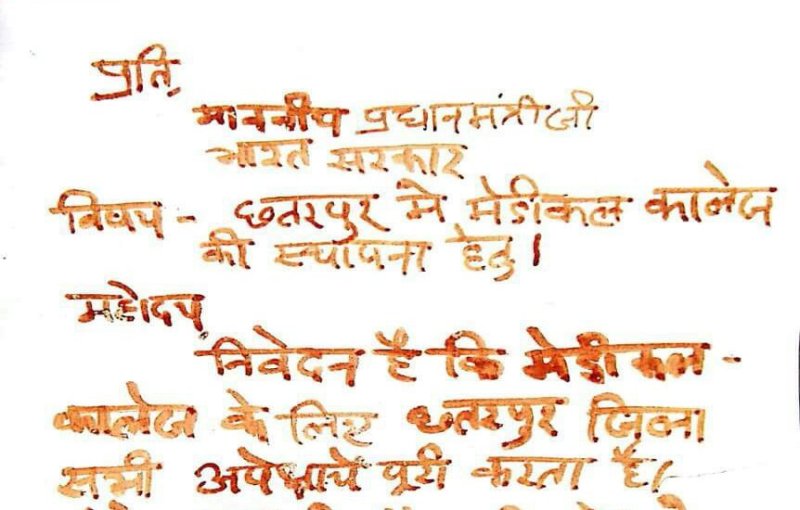 प्रति,
माननीय प्रधानमंत्री जी
भारत सरकार
विषय - छतरपुर मे मेडीकल कालेज
की स्थापना हेतु।
महोदय,
निवेदन है कि मेडीकल -
कालेज के लिए छतरपुर जिला
सभी अपेक्षाये पूरी करता है।